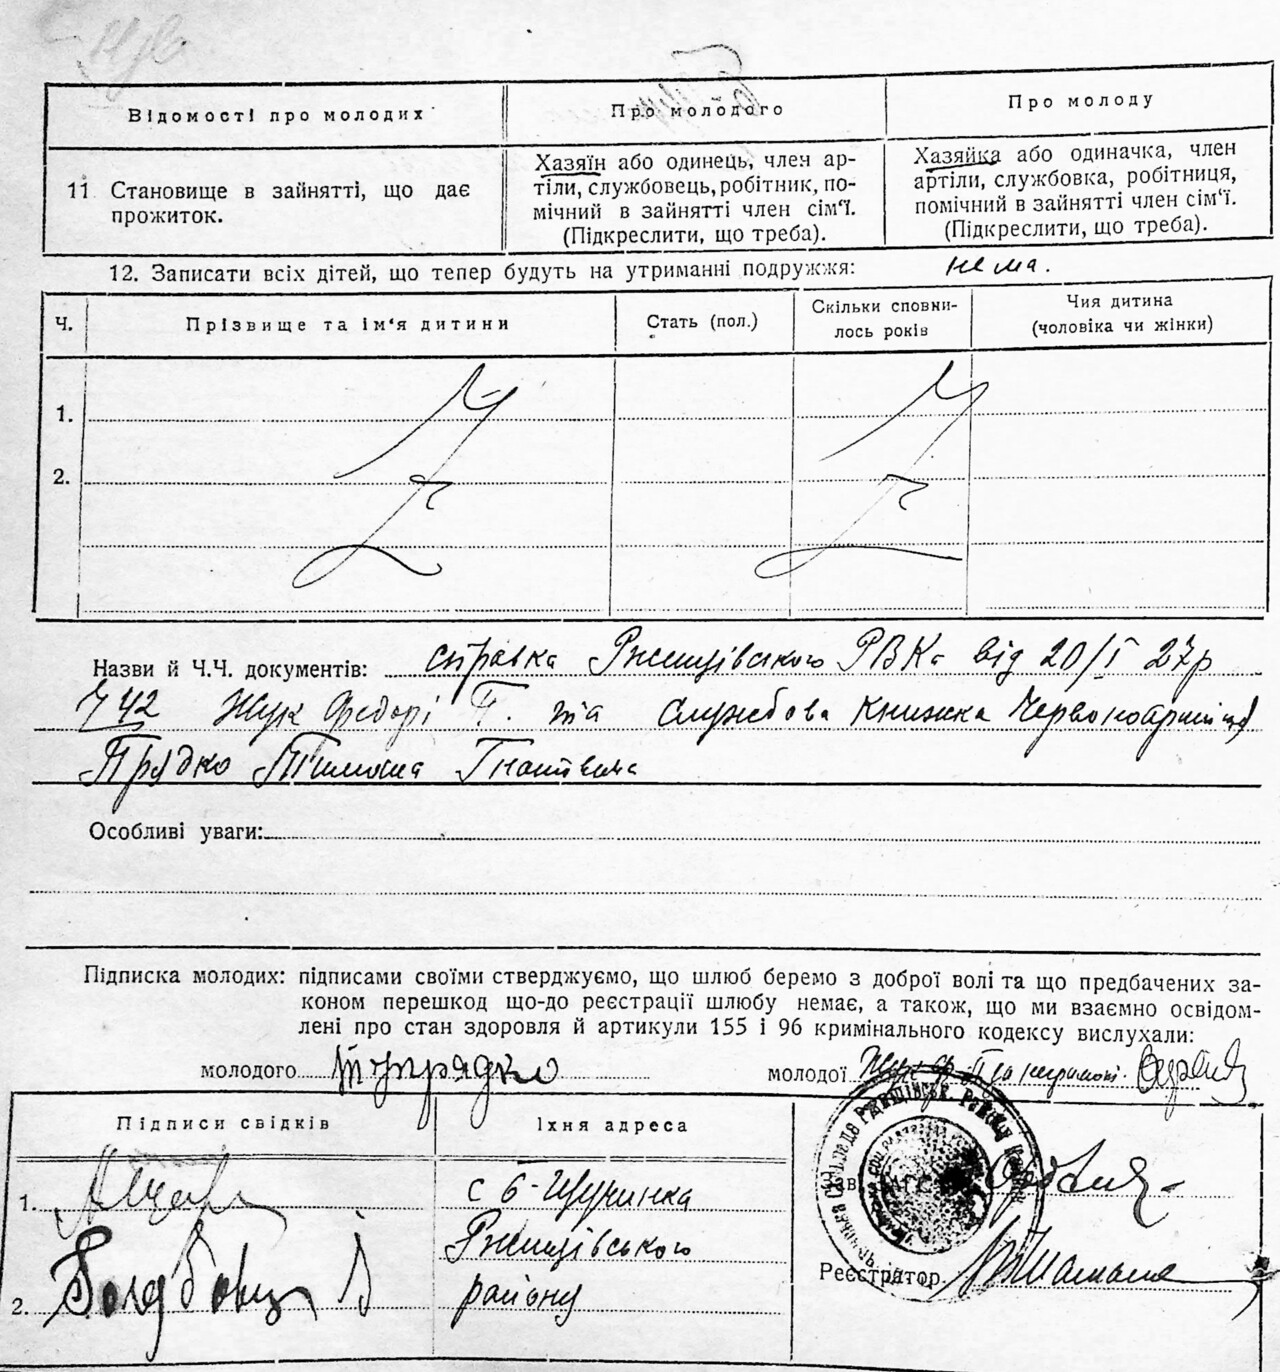 Відомості про молодих
Про молодого
Про молоду
11 Становище в зайнятті, що дає
прожиток.
Хазяїн або одинець, член ар-
тіли, службовець, робітник, по-
мічний в зайнятті член сім'ї.
(Підкреслити, що треба).
Хазяйка або одиначка, член
артіли, службовка, робітниця,
помічний в зайнятті член сім'ї.
(Підкреслити, що треба).
12. Записати всіх дітей, що тепер будуть на утриманні подружжя: нема.
Ч.
Прізвище та ім'я дитини
Стать (пол.)
Скільки сповни-
лось років
Чия дитина
(чоловіка чи жінки)
1.
2.
Назви й Ч.Ч. документів: справка Ржищівського РВКа від 20/I 27р
Ч 42 Жук Федорі Т. та Службова книжка Червоноармійця
Прядко Тимоша Гнатовича
Особливі уваги:
Підписка молодих: підписами своїми стверджуємо, що шлюб беремо з доброї волі та що предбачених за-
коном перешкод що-до реєстрації шлюбу немає, а також, що ми взаємно освідом-
лені про стан здоровля й артикули 155 і 96 кримінального кодексу вислухали:
молодого Прядко
молодої Жук
Підписи свідків
Їхня адреса
1.
с б-Щучинка
Ржищівського
2.
району
Зав
Реєстратор